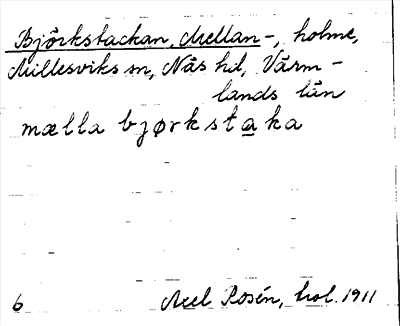 Björkstackan, Mellan-, holme,
Millesviks sn, Näs hd, Värm-
lands län
mælla bjørkstaka
6 Axel Rosén, hol. 1911